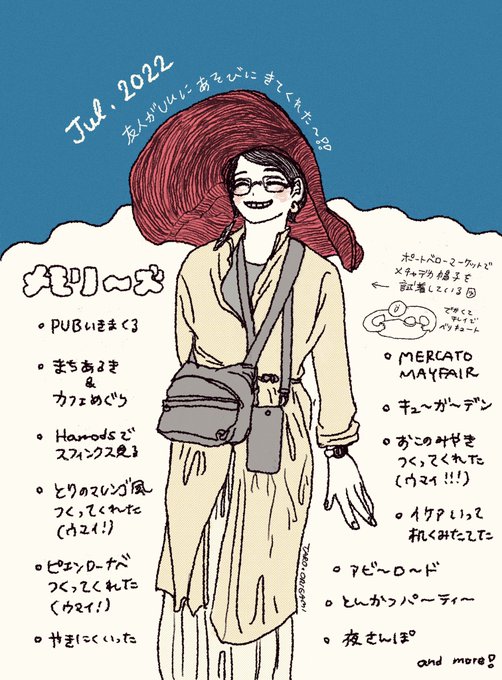 Jul. 2022
友人がUKにあそびにきてくれた〜!!
メモリーズ
• PUBいきまくる
• まちあるき
&
カフェめぐり
• Harrodsで
スフィンクス見る
• とりのマレンゴ風
つくってくれた
(ウマイ!)
• ピエンローナベ
つくってくれた
(ウマイ!)
• やきにくいった
ポートベローマーケットで
メチャデカ帽子を
試着している図
←
でかくて
キレイで
ベリキュート
• MERCATO
MAYFAIR
• キューガーデン
• おこのみやき
つくってくれた
(ウマイ!!!)
• イケアいって
机くみたてた
• アビーロード
• とんかつパーティー
• 夜さんぽ
and more!
TARO.ORIGAMI